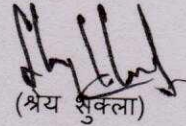 (श्रेय शुक्ला)